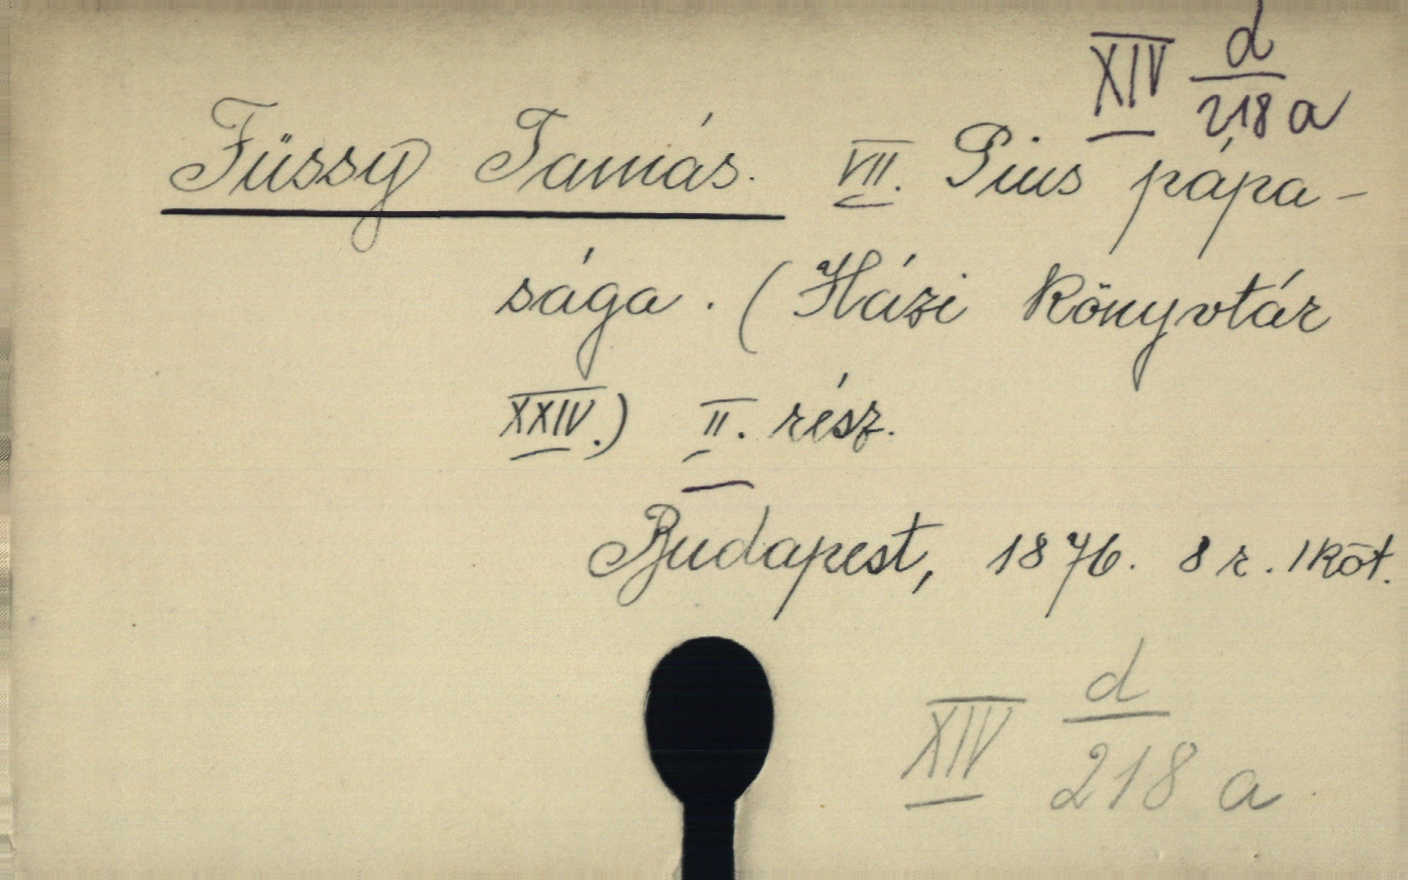 XIV d/218 a
Füssy Tamás. VII. Pius pápa-
sága. (Házi Könyvtár
XXIV.) II. rész.
Budapest, 1876. 8 r. 1 Köt.
XIV d/218 a